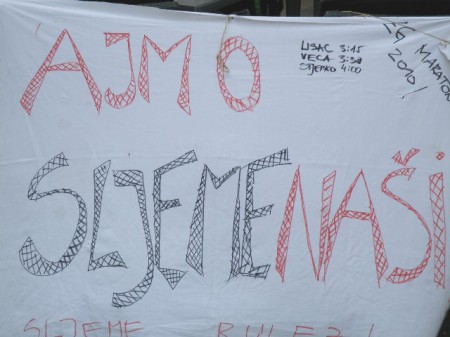 AJMO
LISAC 3:15
VECA 3:30
STJEPKO 4:00
ZG MARATON
2010!
SLJEMENAŠI
SLJEME RULEZ!